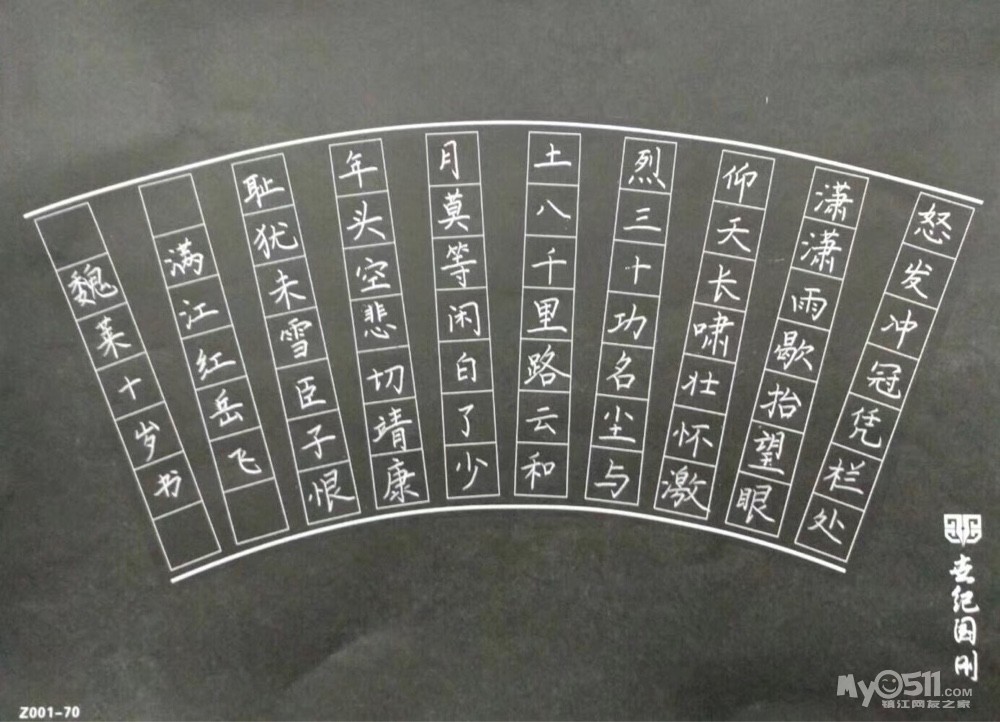 怒发冲冠凭栏处
潇潇雨歇抬望眼
仰天长啸壮怀激
烈三十功名尘与
土八千里路云和
月莫等闲白了少
年头空悲切靖康
耻犹未雪臣子恨
满江红岳飞
魏莱十岁书
世纪国刚
Z001-70
My0511.COM
镇江网友之家